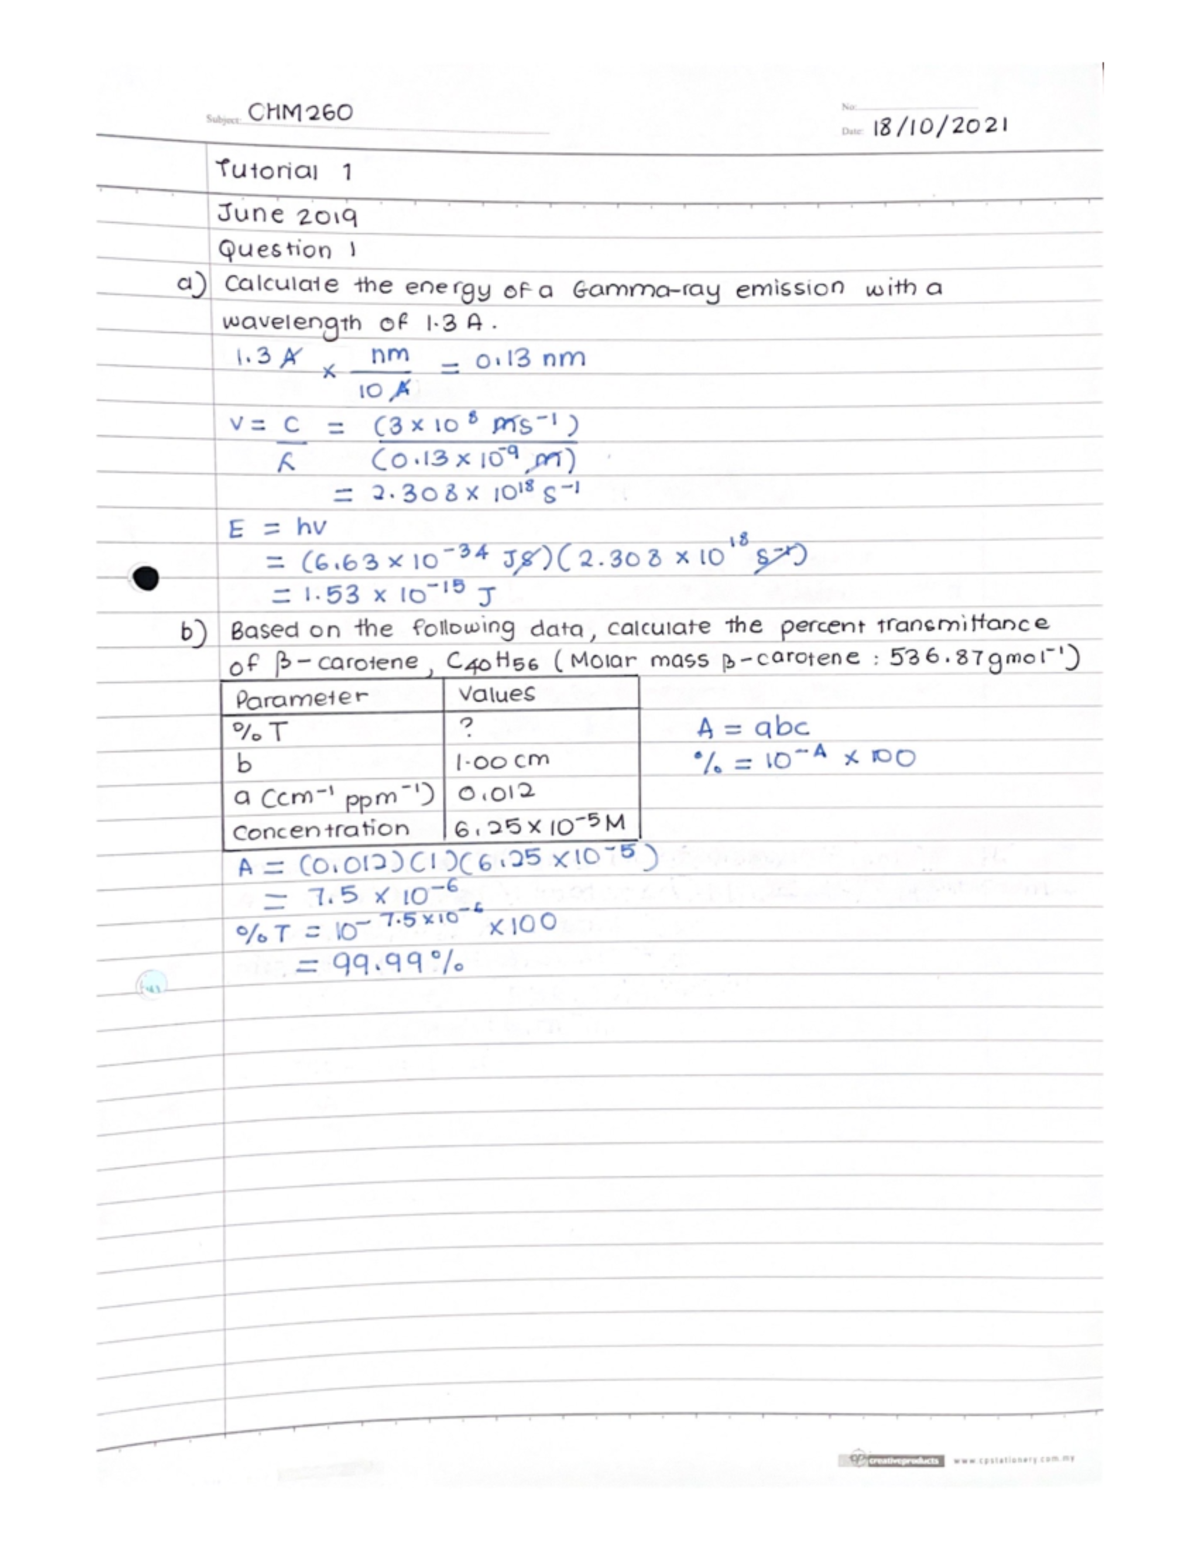 Subject: CHM260
No:
Date: 18/10/2021
Tutorial 1
June 2019
Question 1
a) Calculate the energy of a Gamma-ray emission with a
wavelength of 1.3 A.
1.3 A × nm / 10 A = 0.13 nm
V = C / λ = (3 × 10⁸ ms⁻¹) / (0.13 × 10⁻⁹ m)
= 2.308 × 10¹⁸ s⁻¹
E = hv
= (6.63 × 10⁻³⁴ Js)(2.308 × 10¹⁸ s⁻¹)
= 1.53 × 10⁻¹⁵ J
b) Based on the following data, calculate the percent transmittance
of β-carotene, C₄₀H₅₆ (Molar mass β-carotene : 536.87gmol⁻¹)
Parameter Values
%T ?
b 1.00 cm
a (cm⁻¹ ppm⁻¹) 0.012
Concentration 6.25 × 10⁻⁵ M
A = abc
% = 10⁻ᴬ × 100
A = (0.012)(1)(6.25 × 10⁻⁵)
= 7.5 × 10⁻⁶
%T = 10^-7.5×10⁻⁶ × 100
= 99.99%
creativeproducts www.cpstationery.com.my